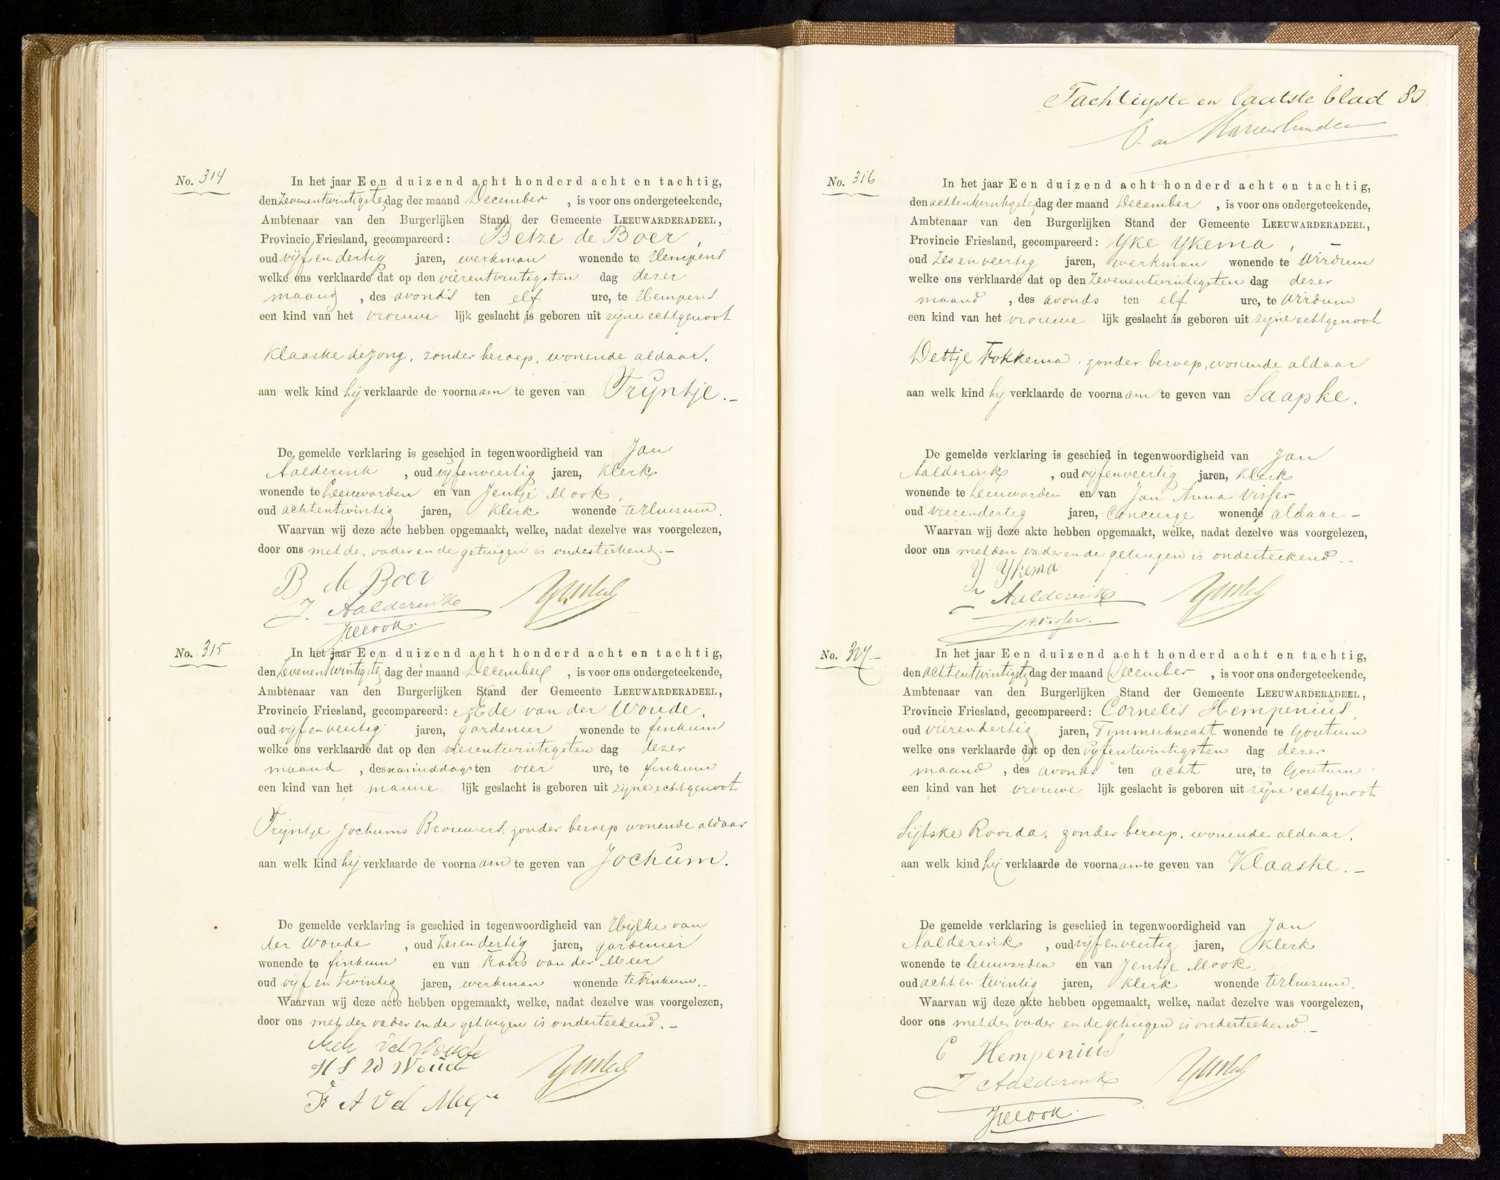 No. 314
In het jaar Een duizend acht honderd acht en tachtig,
den Zevenentwintigste dag der maand December, is voor ons ondergeteekende,
Ambtenaar van den Burgerlijken Stand der Gemeente LEEUWARDERADEEL,
Provincie Friesland, gecompareerd: Betze de Boer,
oud vijf en dertig jaren, werkman wonende te Hempens
welke ons verklaarde dat op den vierentwintigsten dag dezer
maand, des avonds ten elf ure, te Hempens
een kind van het vrouwelijk geslacht is geboren uit zijne echtgenoot
Klaaske de Jong, zonder beroep, wonende aldaar.
aan welk kind hij verklaarde de voornaam te geven van Trijntje. –
De gemelde verklaring is geschied in tegenwoordigheid van Jan
Aalderink, oud vijfenveertig jaren, klerk
wonende te Leeuwarden en van Jentje Mook,
oud achtentwintig jaren, klerk wonende te Huizum.
Waarvan wij deze acte hebben opgemaakt, welke, nadat dezelve was voorgelezen,
door ons met de vader en de getuigen is onderteekend. –
B de Boer
J. Aalderink
JMook
No. 315
In het jaar Een duizend acht honderd acht en tachtig,
den Zevenentwintigste dag der maand December, is voor ons ondergeteekende,
Ambtenaar van den Burgerlijken Stand der Gemeente LEEUWARDERADEEL,
Provincie Friesland, gecompareerd: Ede van der Woude,
oud vijf en veertig jaren, gardenier wonende te Finkum
welke ons verklaarde dat op den vierentwintigsten dag dezer
maand, des namiddags ten vier ure, te Finkum
een kind van het mannelijk geslacht is geboren uit zijne echtgenoot
Trijntje Jochums Brouwers, zonder beroep wonende aldaar
aan welk kind hij verklaarde de voornaam te geven van Jochum.
De gemelde verklaring is geschied in tegenwoordigheid van Wijlke van
der Woude, oud zesendertig jaren, gardenier
wonende te Finkum en van Frans van der Meer
oud vijf en twintig jaren, werkman wonende te Finkum.
Waarvan wij deze acte hebben opgemaakt, welke, nadat dezelve was voorgelezen,
door ons met den vader en de getuigen is onderteekend. –
vd Woude
H S vd Woude
Fr A v d Meer
Tachtigste en laatste blad 80
No. 316
In het jaar Een duizend acht honderd acht en tachtig,
den achtentwintigste dag der maand December, is voor ons ondergeteekende,
Ambtenaar van den Burgerlijken Stand der Gemeente LEEUWARDERADEEL,
Provincie Friesland, gecompareerd: Yke Ykema, –
oud zesenveertig jaren, werkman wonende te Wirdum
welke ons verklaarde dat op den Zevenentwintigsten dag dezer
maand, des avonds ten elf ure, te Wirdum
een kind van het vrouwelijk geslacht is geboren uit zijne echtgenoot
Dettje Fokkema, zonder beroep, wonende aldaar
aan welk kind hij verklaarde de voornaam te geven van Saapke.
De gemelde verklaring is geschied in tegenwoordigheid van Jan
Aalderink, oud vijfenveertig jaren, klerk
wonende te Leeuwarden en van Jan Anna Visser
oud vierendertig jaren, Concierge wonende aldaar –
Waarvan wij deze akte hebben opgemaakt, welke, nadat dezelve was voorgelezen,
door ons met den vader en de getuigen is onderteekend. –
Y Ykema
J. Aalderink
JAVisser
No. 317
In het jaar Een duizend acht honderd acht en tachtig,
den achtentwintigste dag der maand December, is voor ons ondergeteekende,
Ambtenaar van den Burgerlijken Stand der Gemeente LEEUWARDERADEEL,
Provincie Friesland, gecompareerd: Cornelis Hempenius,
oud vierendertig jaren, Timmerknecht wonende te Goutum
welke ons verklaarde dat op den vijfentwintigsten dag dezer
maand, des avonds ten acht ure, te Goutum
een kind van het vrouwelijk geslacht is geboren uit zijne echtgenoot
Sijtske Roorda, zonder beroep, wonende aldaar,
aan welk kind hij verklaarde de voornaam te geven van Klaaske. –
De gemelde verklaring is geschied in tegenwoordigheid van Jan
Aalderink, oud vijfenveertig jaren, klerk
wonende te Leeuwarden en van Jentje Mook
oud acht en twintig jaren, klerk wonende te Huizum.
Waarvan wij deze akte hebben opgemaakt, welke, nadat dezelve was voorgelezen,
door ons met den vader en de getuigen is onderteekend. –
C Hempenius
J Aalderink
JMook